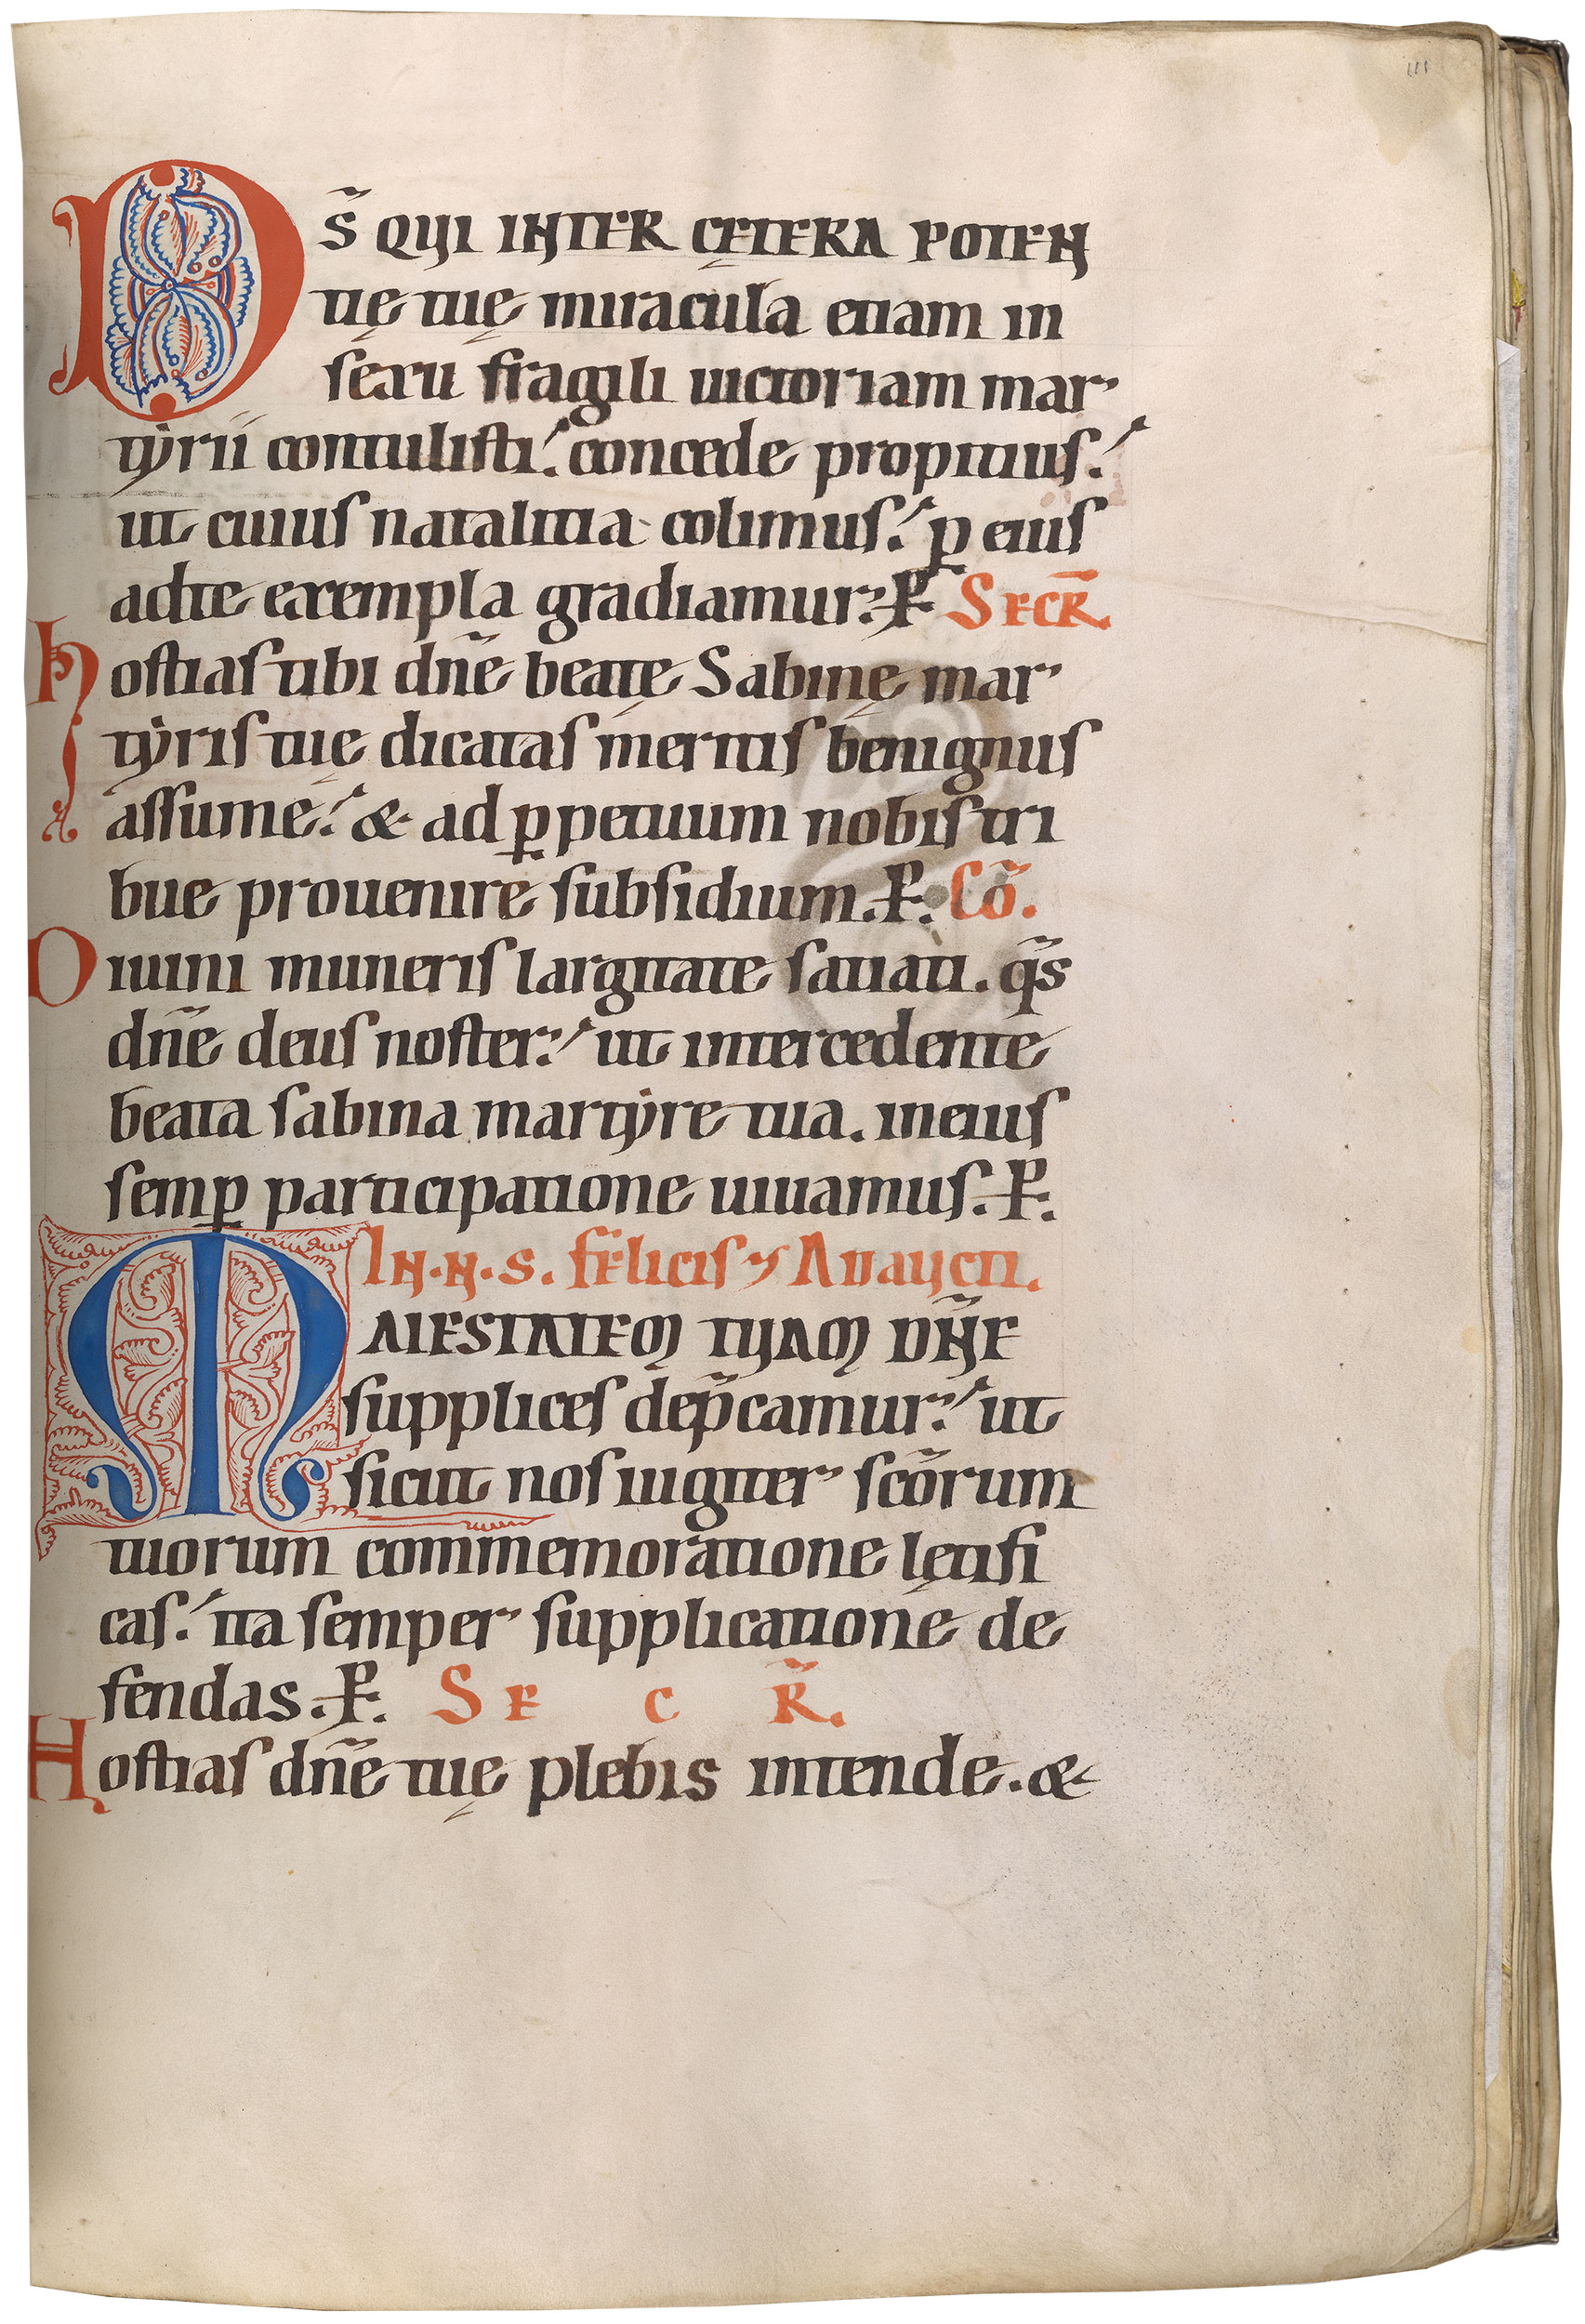 III
DS̃ QUI INTER CĘTERA POTEN
tię tuę miracula etiam in
sexu fragili uictoriam mar
tyrii contulisti. concede propitius.
ut cuius natalitia colimus. ꝑ eius
adte exempla gradiamur. P. SECR̃
Hostias tibi dñe beatę Sabinę mar
tyris tuę dicatas meritis benignus
assume. & ad ꝑpetuum nobis tri
bue prouenire subsidium. P. Cõ.
Diuini muneris largitate satiati. q̃s
dñe deus noster. ut intercedente
beata sabina martyre tua. in eius
semꝑ participatione uiuamus. P.
IN. N. S. felicis & Adaucti.
MAIESTATEM TUAM DÑE
supplices dep̃camur. ut
sicut nos iugiter scõrum
tuorum commemoratione lętifi
cas. ita semper supplicatione de
fendas. P. SECR̃.
Hostias dñe tuę plebis intende. &